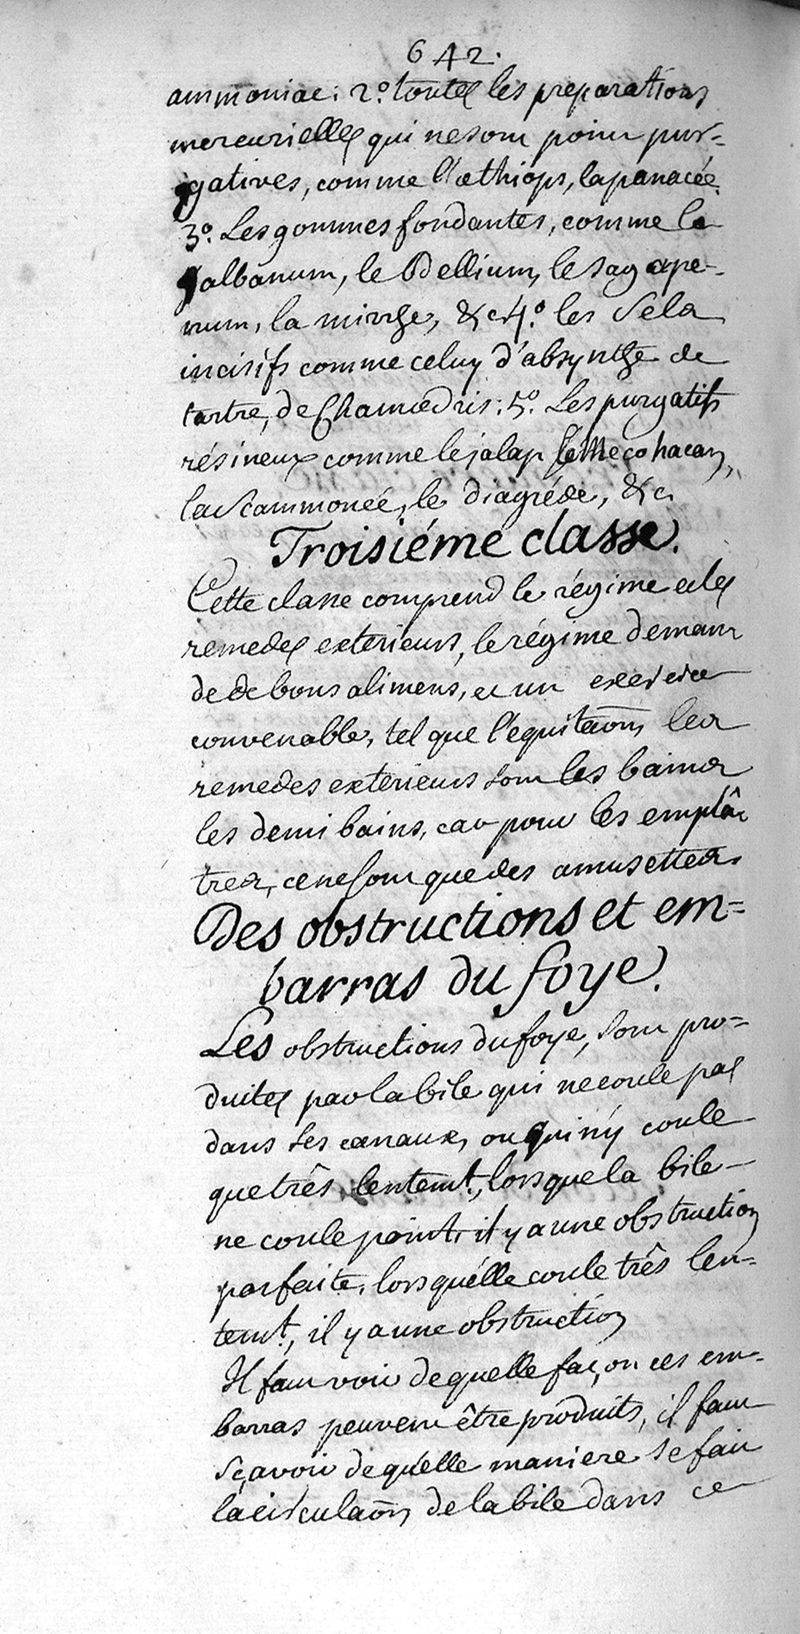 642.
ammoniac: 2º. toutes les preparations
mercurielles qui ne sont point pur-
gatives, comme l'œthiops, la panacée.
3º. Les gommes fondantes, comme le
galbanum, le Bdellium, le sagape-
num, la mirrhe, &c. 4º. les Sels
incisifs comme celuy d'absynthe de
tartre, de Chamœdris: 5º. Les purgatifs
résineux comme le jalap le Mecohacan,
la Scammonée, le diagréde, &c.
Troisiéme classe.
Cette classe comprend le régime et les
remedes exterieurs, le régime deman
de de bons alimens, et un exercice
convenable, tel que l'equitaōn, les
remedes exterieurs sont les bains
les demi bains, car pour les emplâ
tres, ce ne sont que des amusettes.
Des obstructions et em=
barras du foye.
Les obstructions du foye, sont pro=
duites par la bile qui ne coule pas
dans ses canaux, ou qui n'y coule
que três lentemt., lorsque la bile
ne coule point, il y a une obstruction
parfaite, lorsqu'elle coule três len-
temt., il y a une obstruction
Il faut voir de quelle façon ces em-
barras peuvent être produits, il faut
sçavoir de quelle maniere se fait
la circulaōn de la bile dans ce